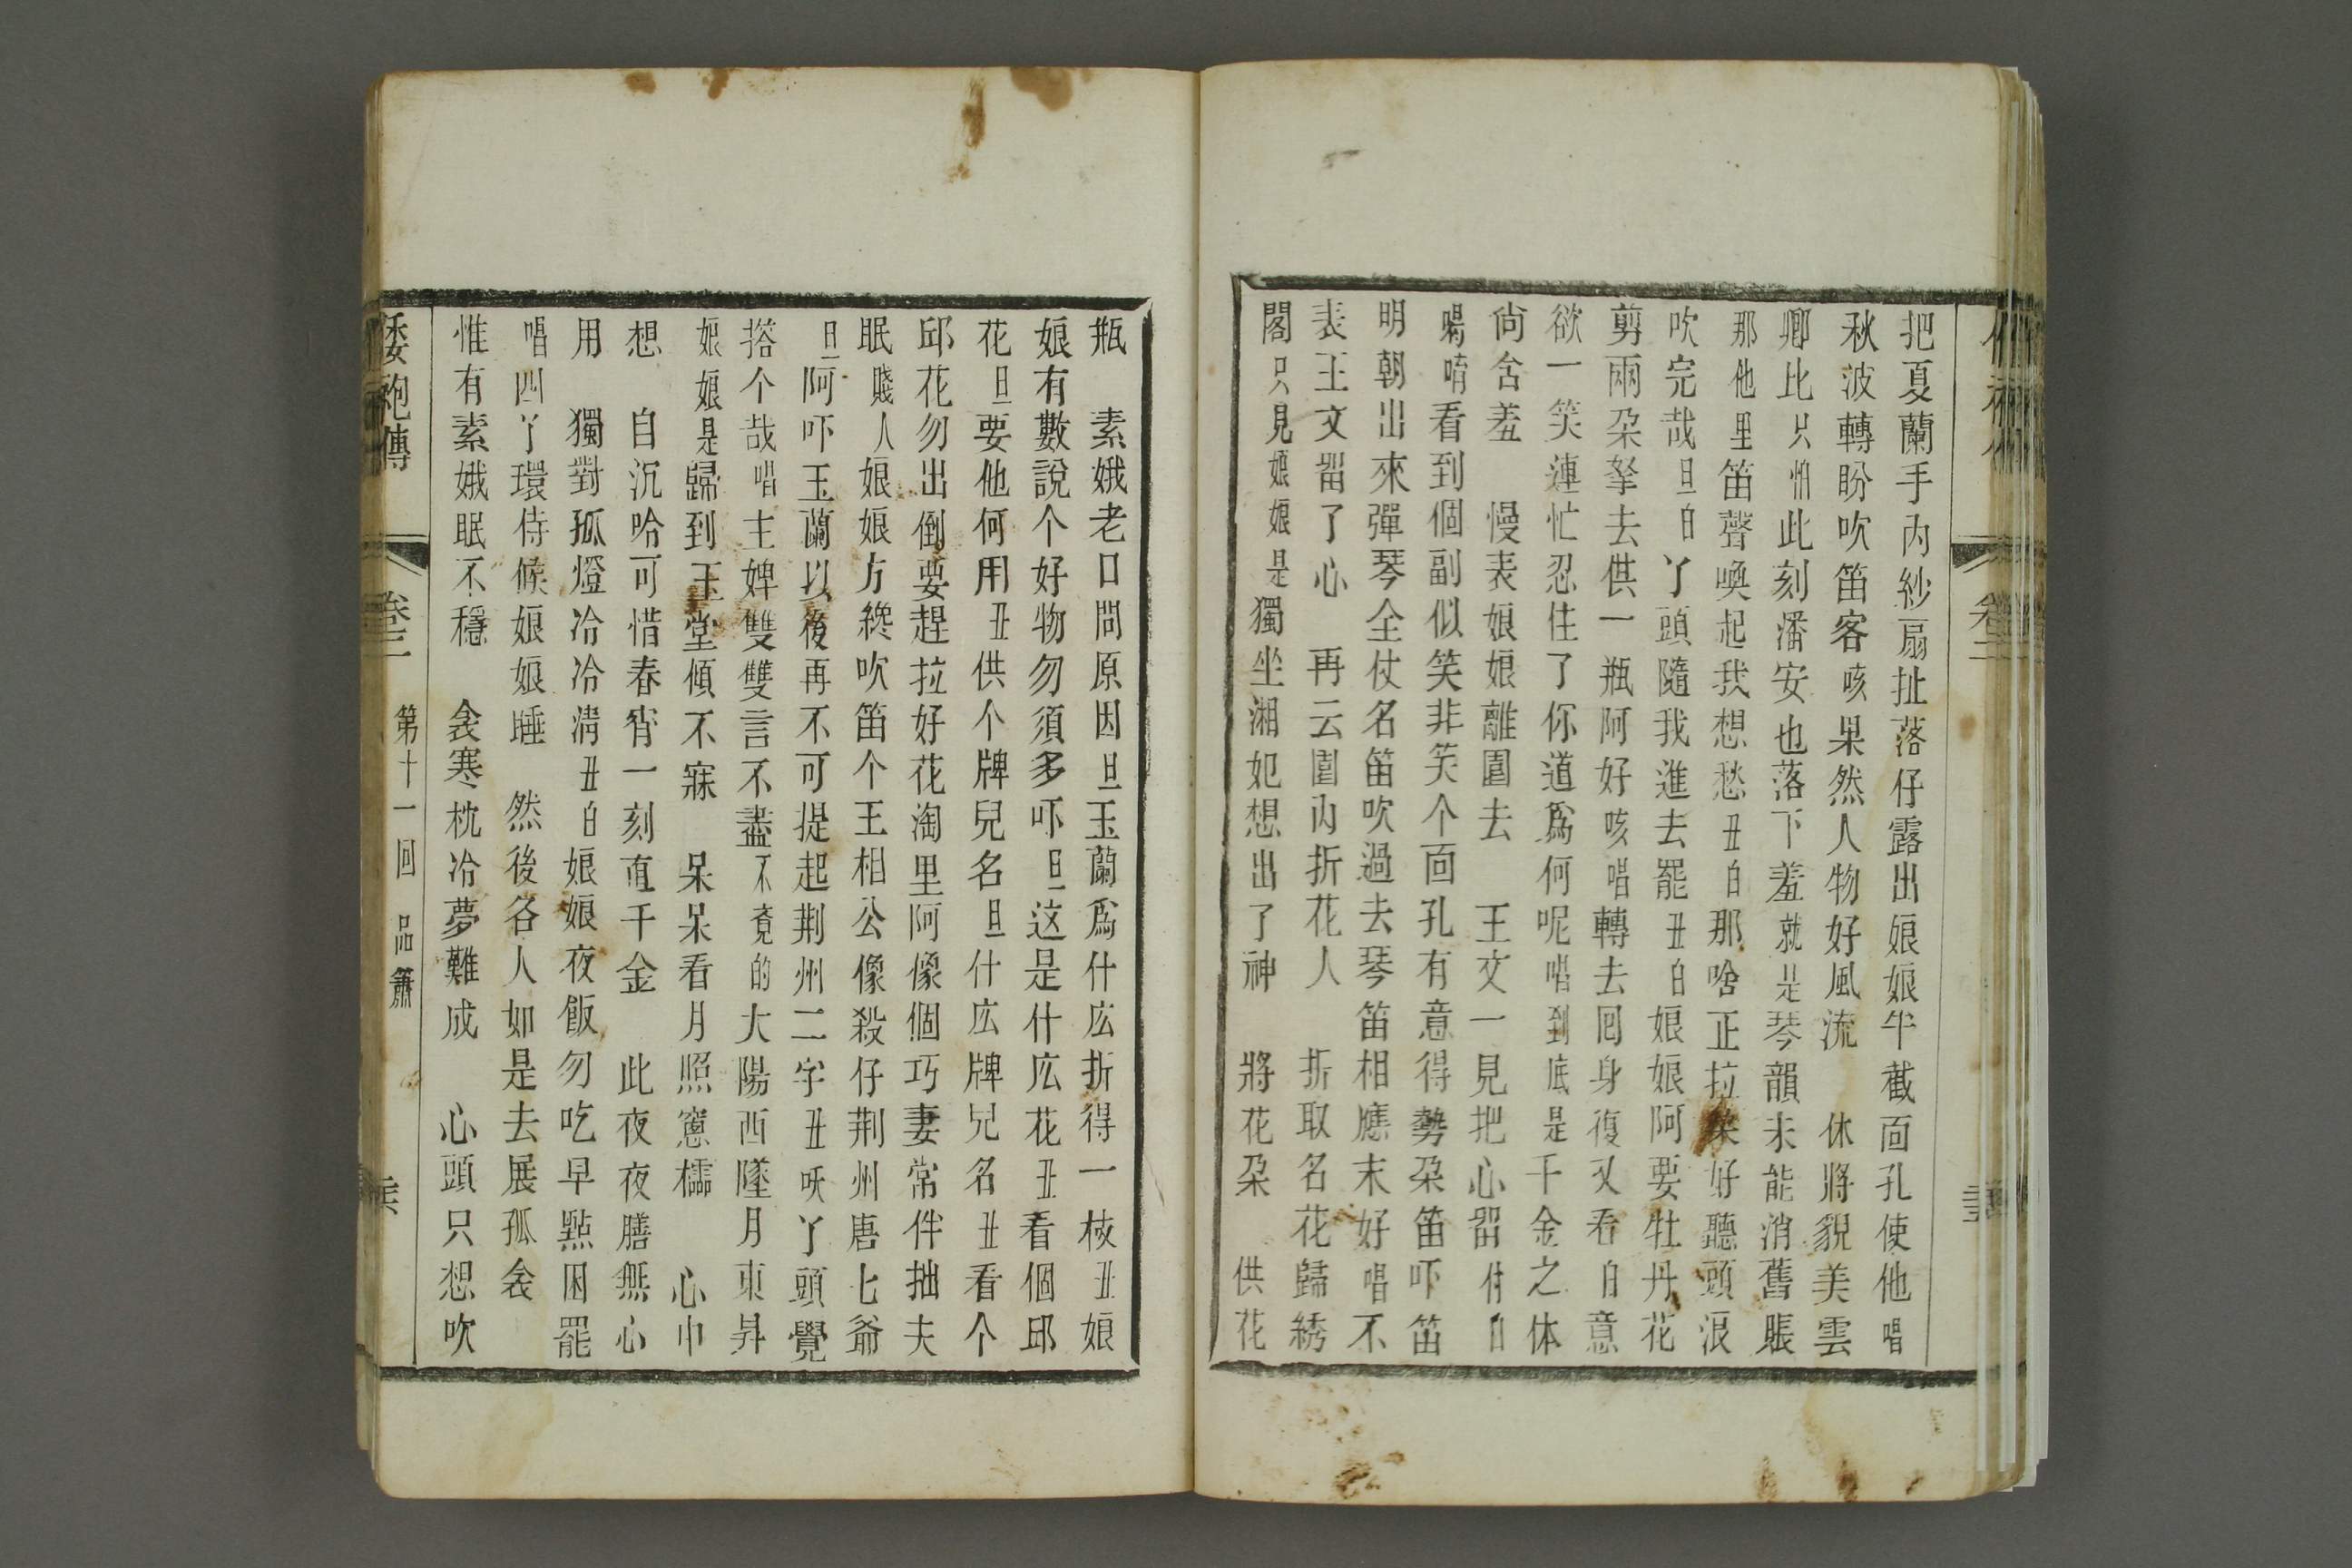 把夏蘭手內紗扇扯落仔露出娘娘半截面孔使他唱
秋波轉盼吹笛客咳果然人物好風流 休將貌美雲
卿比只怕此刻潘安也落下羞就是琴韻未能消舊賬
那他里笛聲喚起我想愁丑白那唅正拉 好聽頭浪
吹完哉旦白丫頭隨我進去罷丑白娘娘阿要牡丹花
剪兩朶拏去供一瓶阿好咳唱轉去囘身復又看白意
欲一笑連忙忍住了你道爲何呢唱到底是千金之体
尙含羞 慢表娘娘離園去 王文一見把心畱付白
喝唷看到個副似笑非笑个面孔有意得勢朶笛吓笛
明朝出來彈琴全仗名笛吹過去琴笛相應末好唱不
表王文畱了心 再云園內折花人 折取名花歸綉
閣只見娘娘是獨坐湘妃想出了神 將花朶 供花
瓶 素娥老口問原因旦玉蘭爲什庅折得一枝丑娘
娘有數說个好物勿須多吓旦这是什庅花丑看個邱
花旦要他何用丑供个牌兒名旦什庅牌兒名丑看个
邱花勿出倒要趕拉好花淘里阿像個巧妻常伴拙夫
眠賤人娘娘方纔吹笛个王相公像殺仔荆州唐七爺
旦阿吓玉蘭以後再不可提起荆州二字丑呒丫頭覺
搭个哉唱主婢雙雙言不盡不竟的大陽西墜月東昇
娘娘是歸到玉堂傾不寐 呆呆看月照窻櫺 心巾
想 自沉哈可惜春宵一刻直千金 此夜夜膳無心
用 獨對孤燈冷冷淸丑白娘娘夜飯勿吃早點困罷
唱四丫環侍候娘娘睡 然後各人如是去展孤衾
惟有素娥眠不穩 衾寒枕冷夢難成 心頭只想吹
倭袍傳 卷二 第十一回 品簫